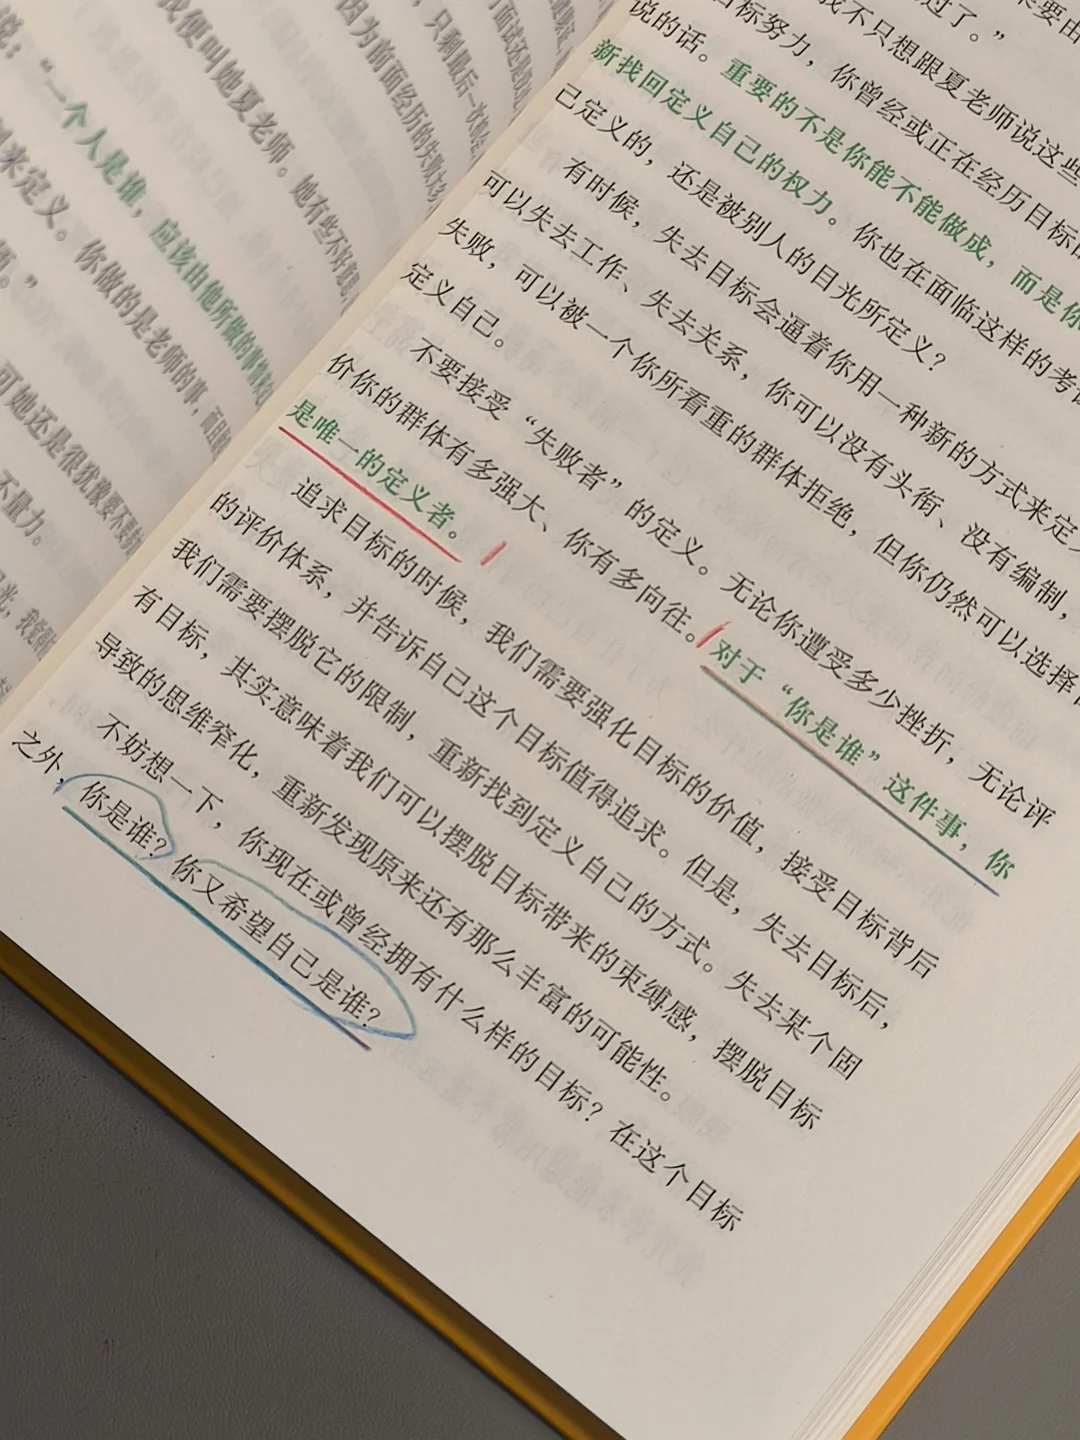 我便叫她夏老师。她有些不好意思
说：“一个人是谁，应该由他所做的事情来定
来定义。你做的是老师的事，而且
可她还是很犹豫要不要
不量力。
因为前面经历的失败太多
，只剩最后一次
过了。”
我不只想跟夏老师说这些
目标努力，你曾经或正在经历目标
说的话。重要的不是你能不能做成，而是你
新找回定义自己的权力。你也在面临这样的考
己定义的，还是被别人的目光所定义？
有时候，失去目标会逼着你用一种新的方式来定义
可以失去工作、失去关系，你可以没有头衔、没有编制，
失败，可以被一个你所看重的群体拒绝，但你仍然可以选择
定义自己。
不要接受“失败者”的定义。无论你遭受多少挫折，无论评
价你的群体有多强大、你有多向往。对于“你是谁”这件事，你
是唯一的定义者。
追求目标的时候，我们需要强化目标的价值，接受目标背后
的评价体系，并告诉自己这个目标值得追求。但是，失去目标后，
我们需要摆脱它的限制，重新找到定义自己的方式。失去某个固
有目标，其实意味着我们可以摆脱目标带来的束缚感，摆脱目标
导致的思维窄化，重新发现原来还有那么丰富的可能性。
不妨想一下，你现在或曾经拥有什么样的目标？在这个目标
之外，你是谁？你又希望自己是谁？